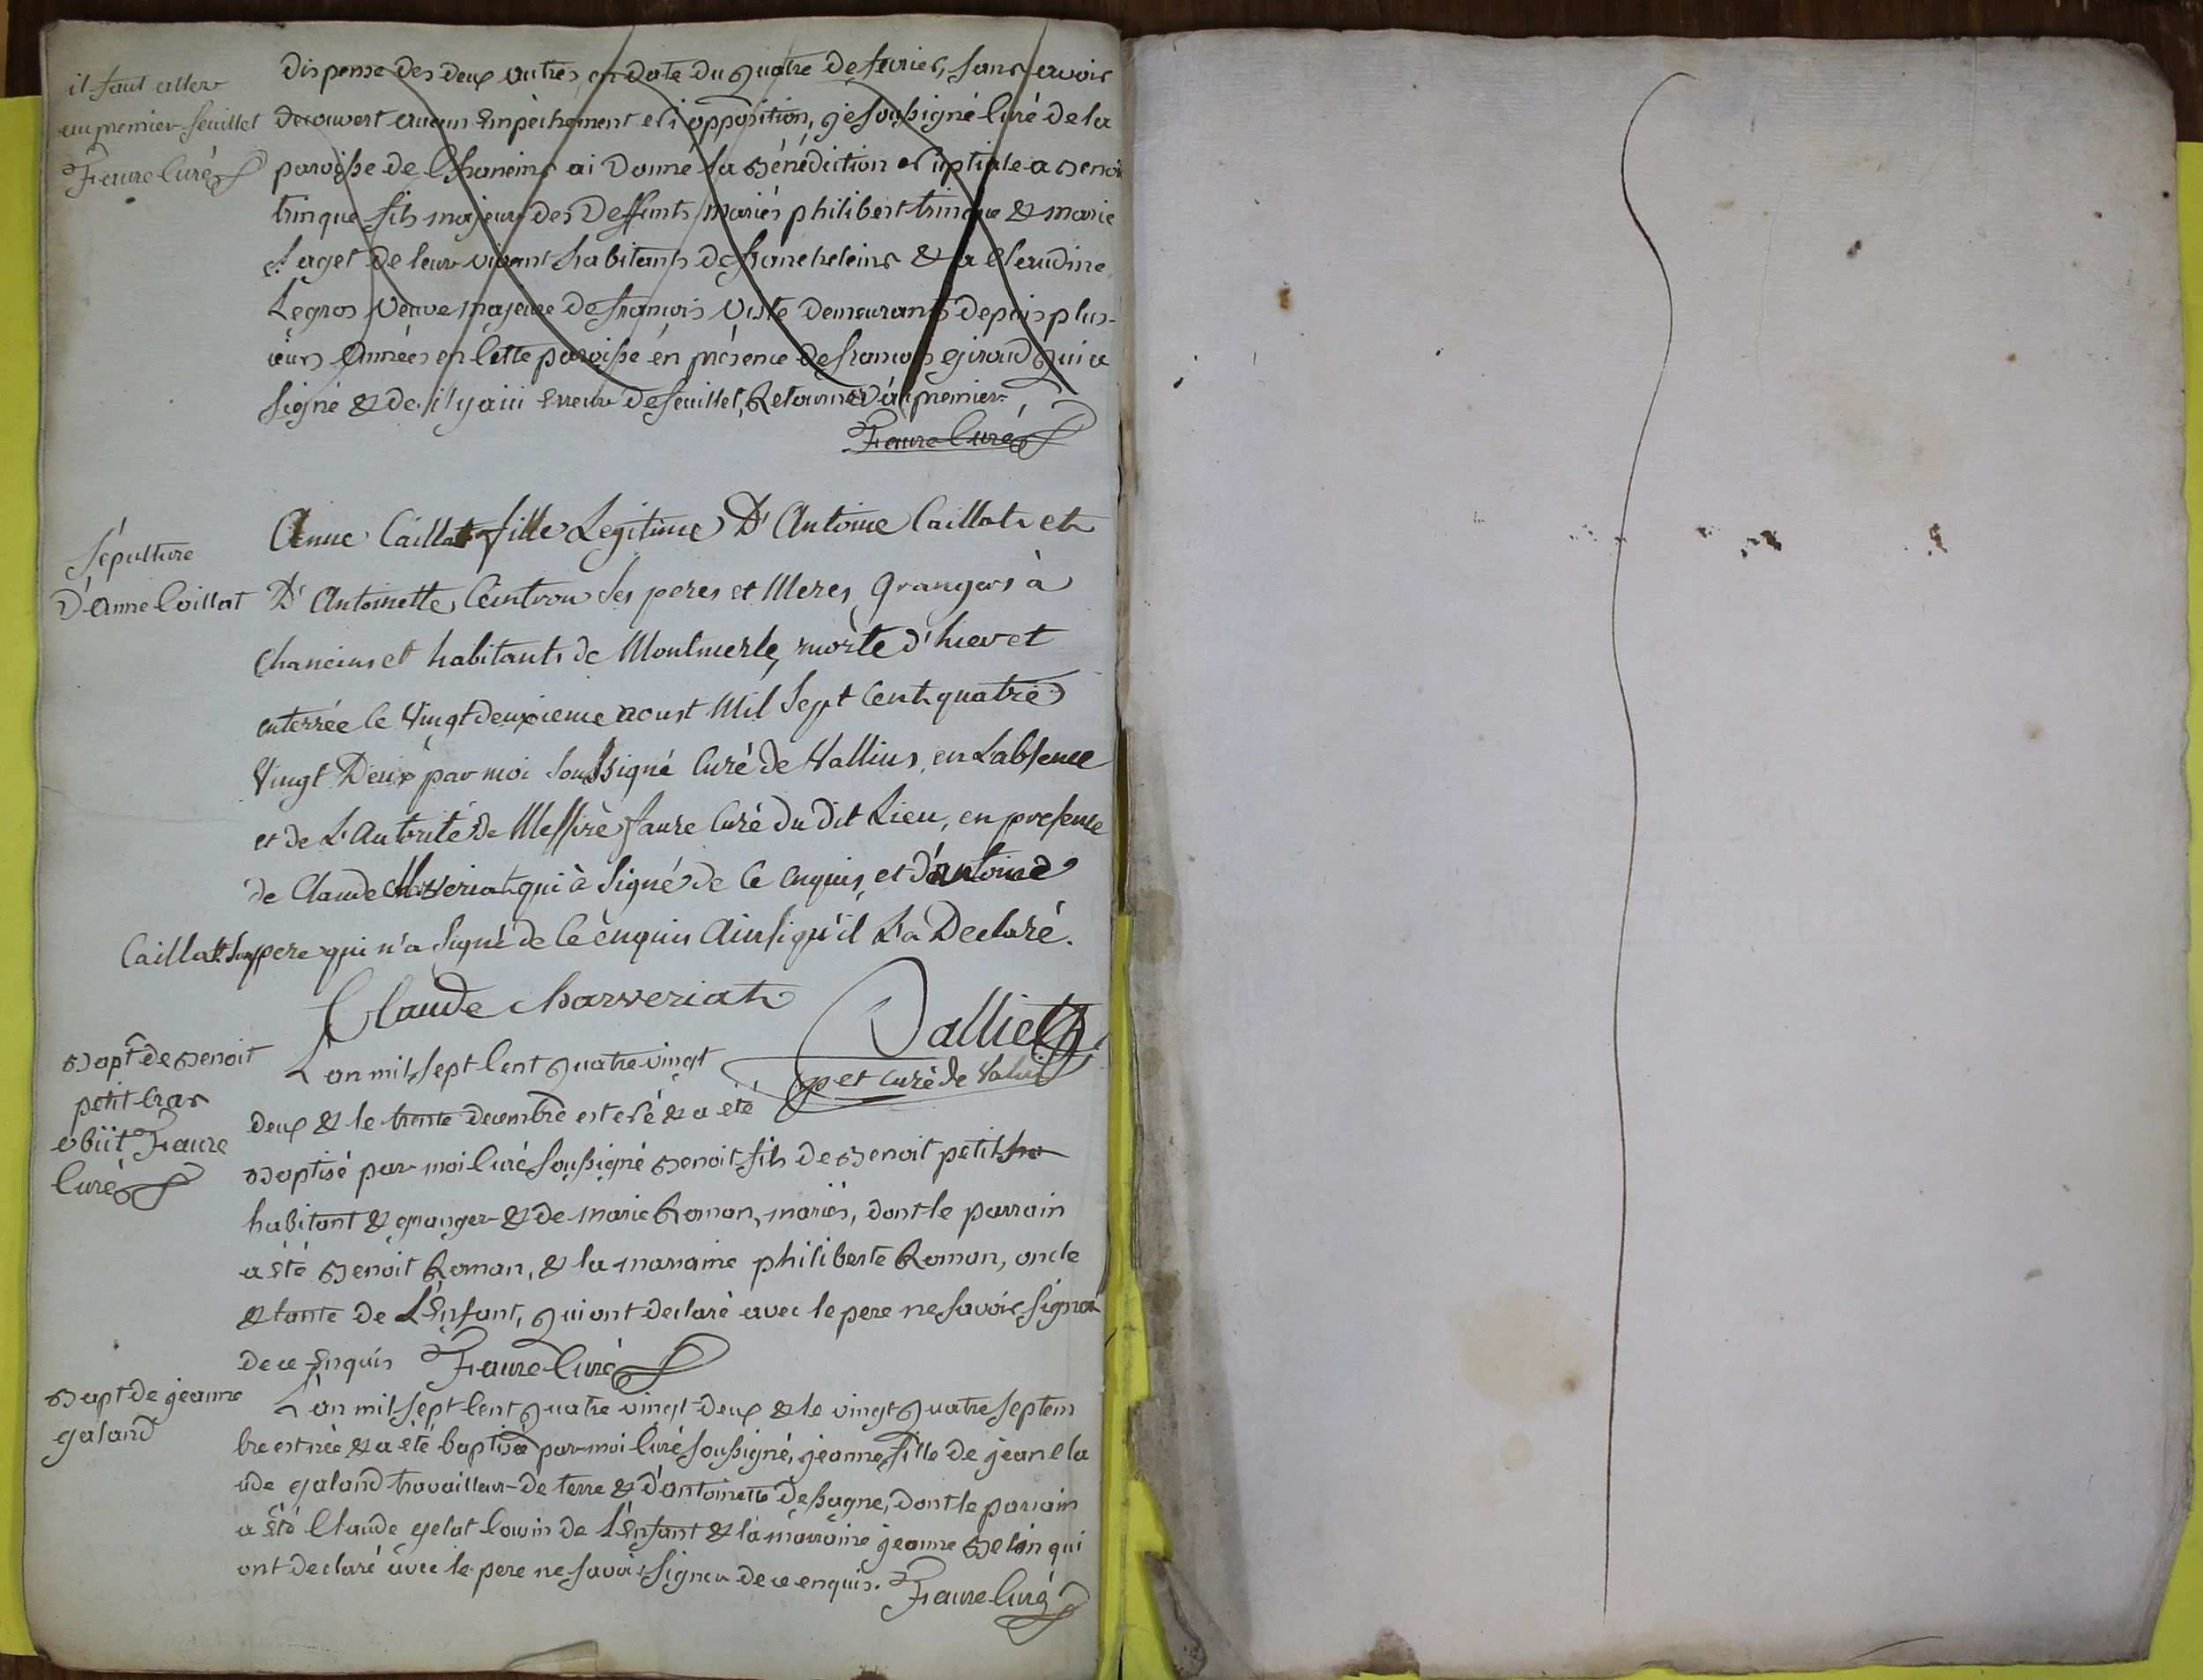 il faut aller
au premier feuillet
Faure Curé
dispense des deux autres, en date du quatre de fevrier, sans avoir
decouvert aucun Empèchement ni opposition, je soussigné Curé de la
paroisse de Chaneins ai donné la Bénédiction nuptiale a Benoit
trinque fils majeur des deffunts mariés philibert trinque & marie
Laget de leur vivant habitants de francheleins & a Claudine
Legros veuve majeure de françois Viste demeurants depuis plus-
ieurs années en Cette paroisse en présence de françois giraud qui a
signé & de. il y a ici Erreur de feuillet, Retournés au premier
Faure Curé
Sépulture
d'anne Caillat
Anne Caillat fille Legitime D'Antoine Caillat et
D'Antoinette Ceintron ses peres et Meres Grangers à
Chaneins et habitants de Montmerle, morte d'hier et
enterrée le Vingt deuxieme aoust Mil Sept Cent quatre
Vingt Deux par moi soussigné Curé de Vallins, en L'absence
et de L'Autorité de Messire Faure Curé du dit Lieu, en presence
de Claude Charveriat qui à Signé de Ce enquis, et d'antoine
Caillat son pere qui n'a Signé de Ce enquis Ainsi qu'il L'a Declaré.
Claude Charveriat
Valliet
p et curé de Valins
Bapt de Benoit
petit bras
obiit Faure
Curé
L'an mil sept Cent quatre vingt
deux & le trente decembre est né & a été
Baptisé par moi Curé soussigné Benoit fils de Benoit petit
habitant & granger & de marie Roman, mariés, dont le parrain
a été Benoit Roman, & la marraine philiberte Roman, oncle
& tante de L'Enfant, qui ont declaré avec le pere ne savoir signer
de ce Enquis Faure Curé
Bapt de jeanne
galand
L'an mil sept Cent quatre vingt deux & le vingt quatre septem
bre est née & a été baptisée par moi Curé soussigné, jeanne fille de jean Cla
ude galand travailleur de terre & d'antoinette desagne, dont le parrain
a été Claude gelat Cousin de L'Enfant & la marraine jeanne Belin qui
ont declaré avec le pere ne savoir signer de ce enquis. Faure Curé